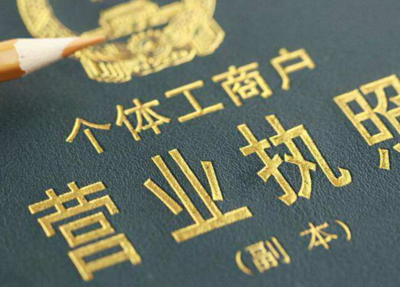 个体工商户
营业执照
(副本)